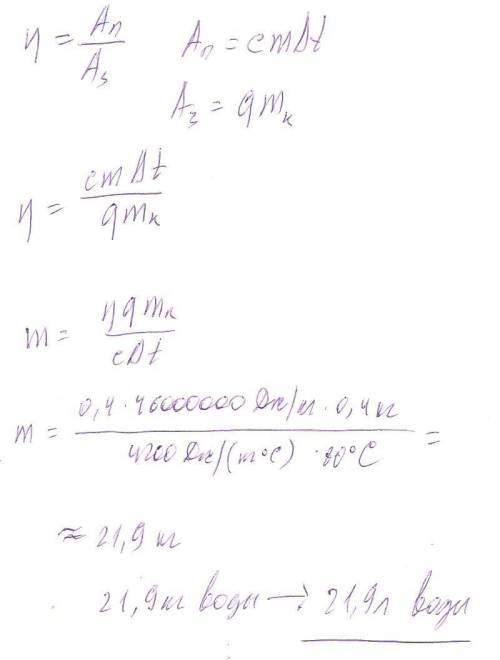 η = Aп / Aз    Aп = cmΔt
Aз = qmк
η = cmΔt / qmк
m = ηqmк / cΔt
m = 0,4 · 46000000 Дж/кг · 0,4 кг / 4200 Дж/(кг°С) · 80°С =
≈ 21,9 кг
21,9 кг воды → 21,9 л воды